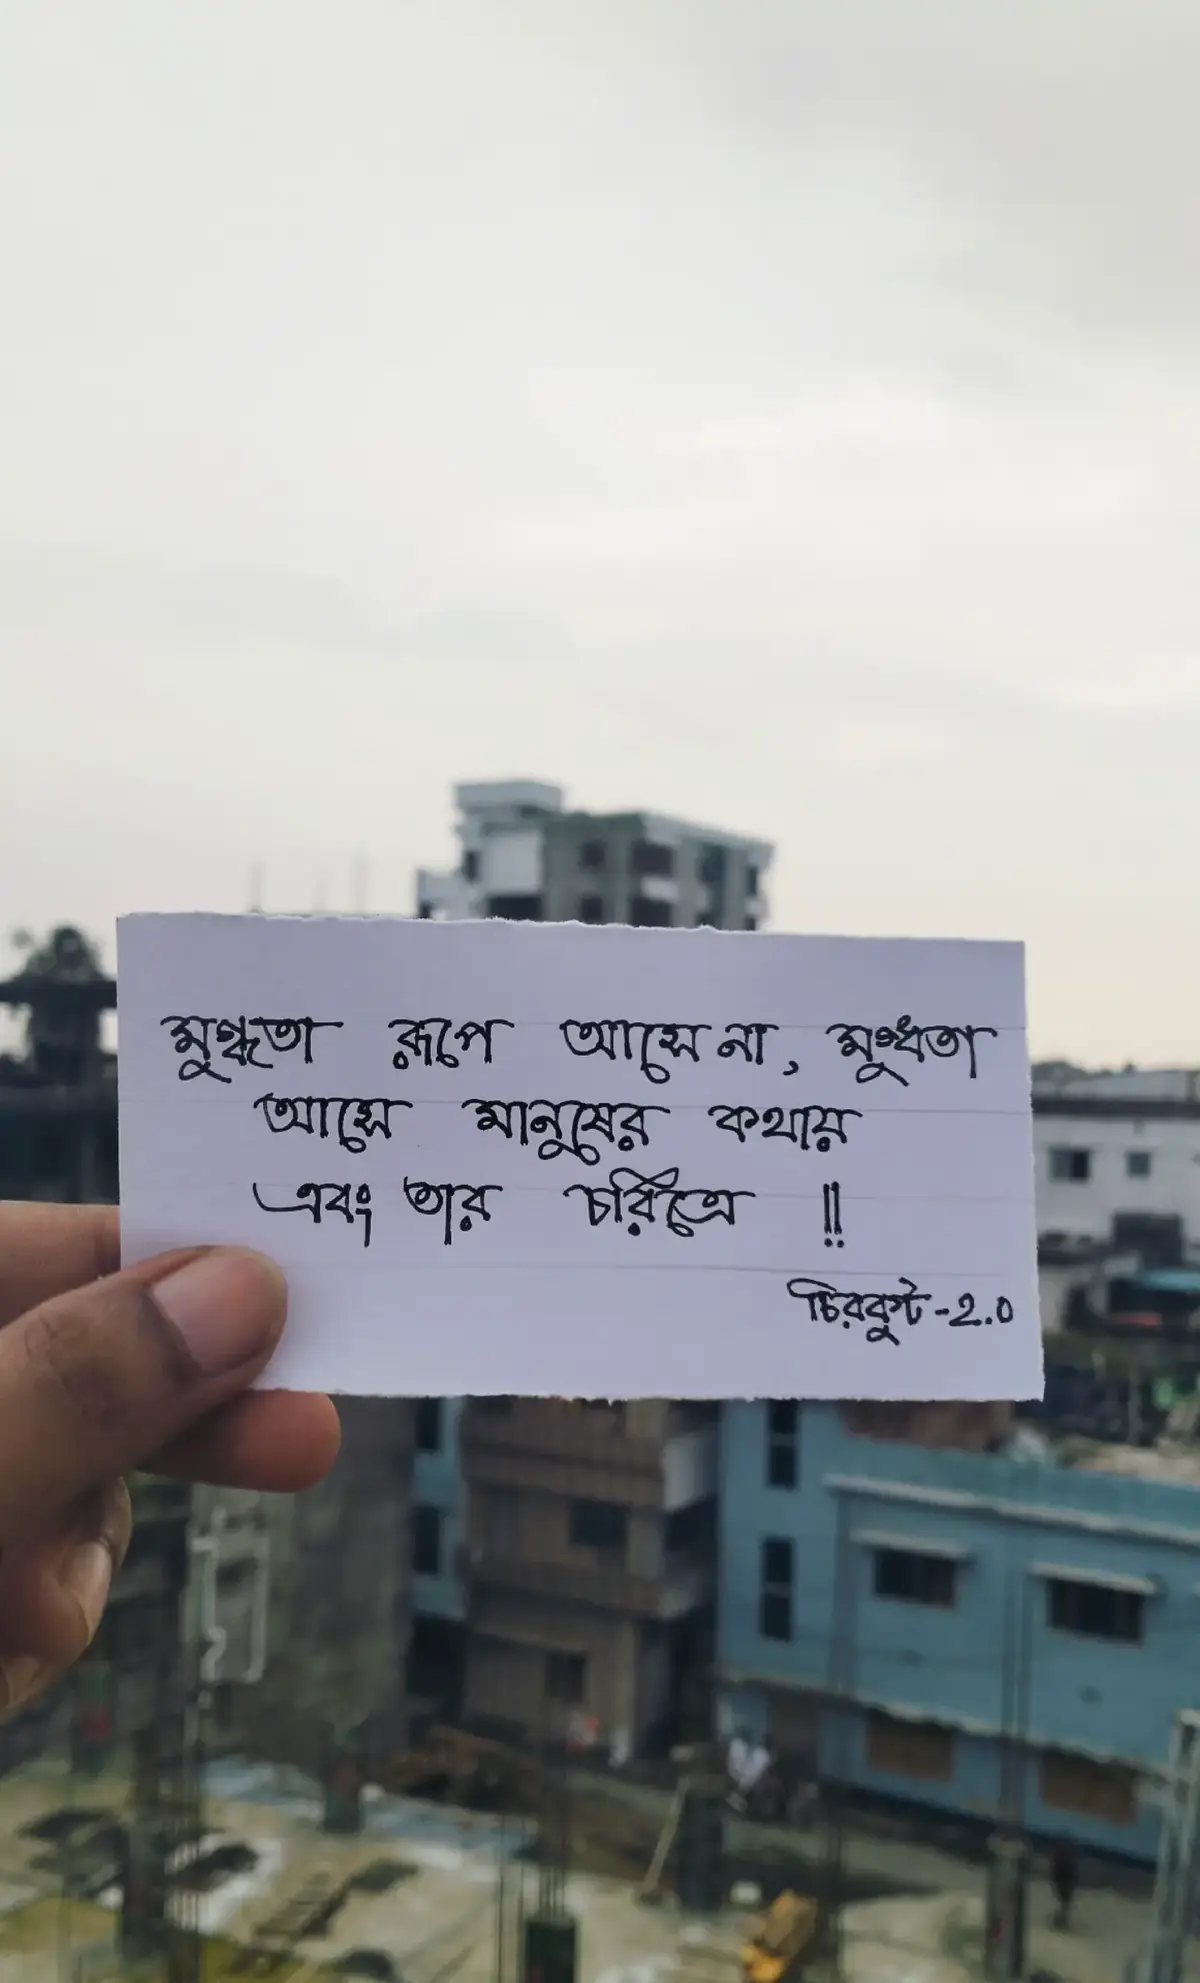 মুগ্ধতা রূপে আসে না, মুগ্ধতা
আসে মানুষের কথায়
এবং তার চরিত্রে !!
চিরকুট -2.0